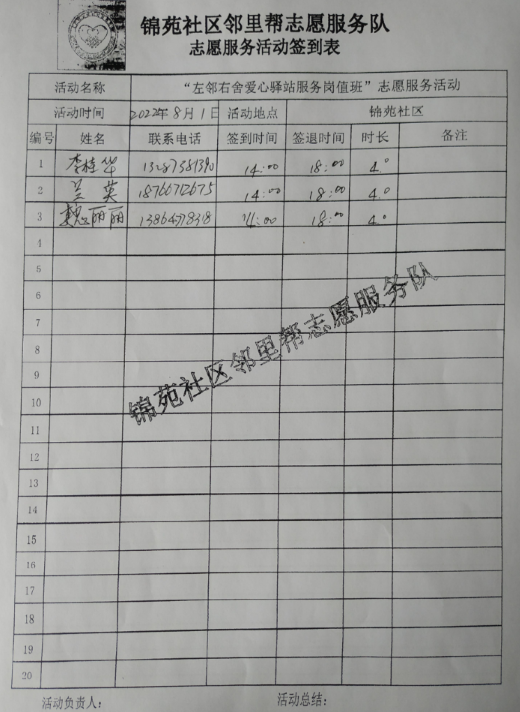 锦苑社区邻里帮志愿服务队
志愿服务活动签到表
活动名称 “左邻右舍爱心驿站服务岗值班”志愿服务活动
活动时间 2022年8月1日 活动地点 锦苑社区
编号 姓名 联系电话 签到时间 签退时间 时长 备注
1 李桂华 14:00 18:00 4.0
2 兰英 18766712675 14:00 18:00 4.0
3 魏丽丽 14:00 18:00 4.0
4
5
6
7
8
9
10
11
12
13
14
15
16
17
18
19
20
锦苑社区邻里帮志愿服务队
活动负责人: 活动总结: